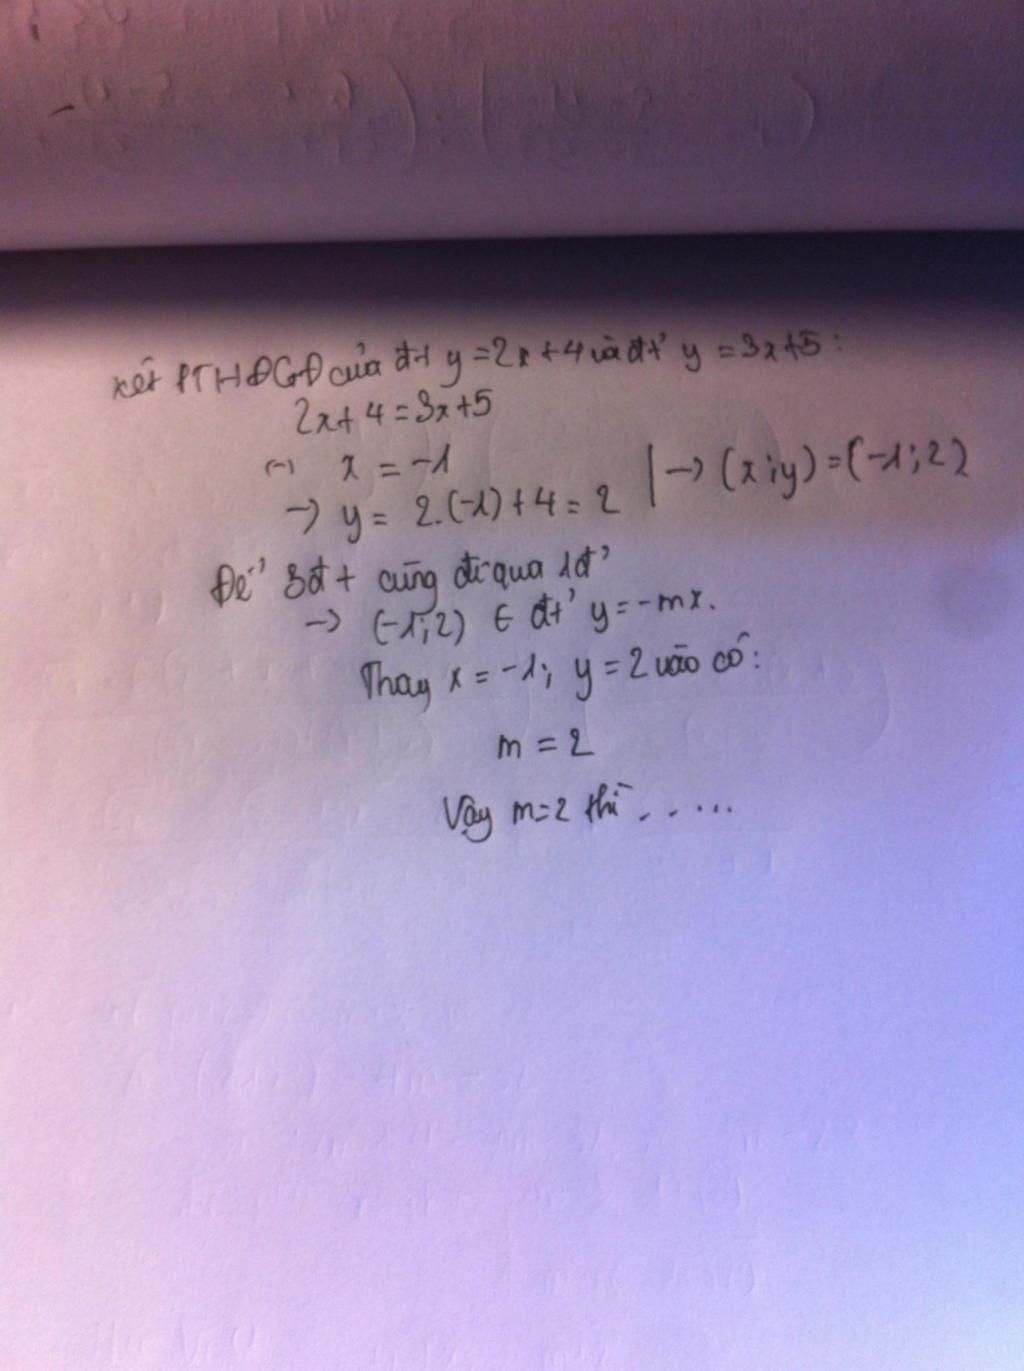 xét PTHĐGĐ của đt y = 2x + 4 và đt y = 3x + 5 :
2x + 4 = 3x + 5
(-) x = -1
→ y = 2.(-1) + 4 = 2 | → (x;y) = (-1; 2)
Để 3đt cùng đi qua 1đ'
→ (-1; 2) ∈ đt y = -mx.
Thay x = -1; y = 2 vào có :
m = 2
Vậy m = 2 thì .....